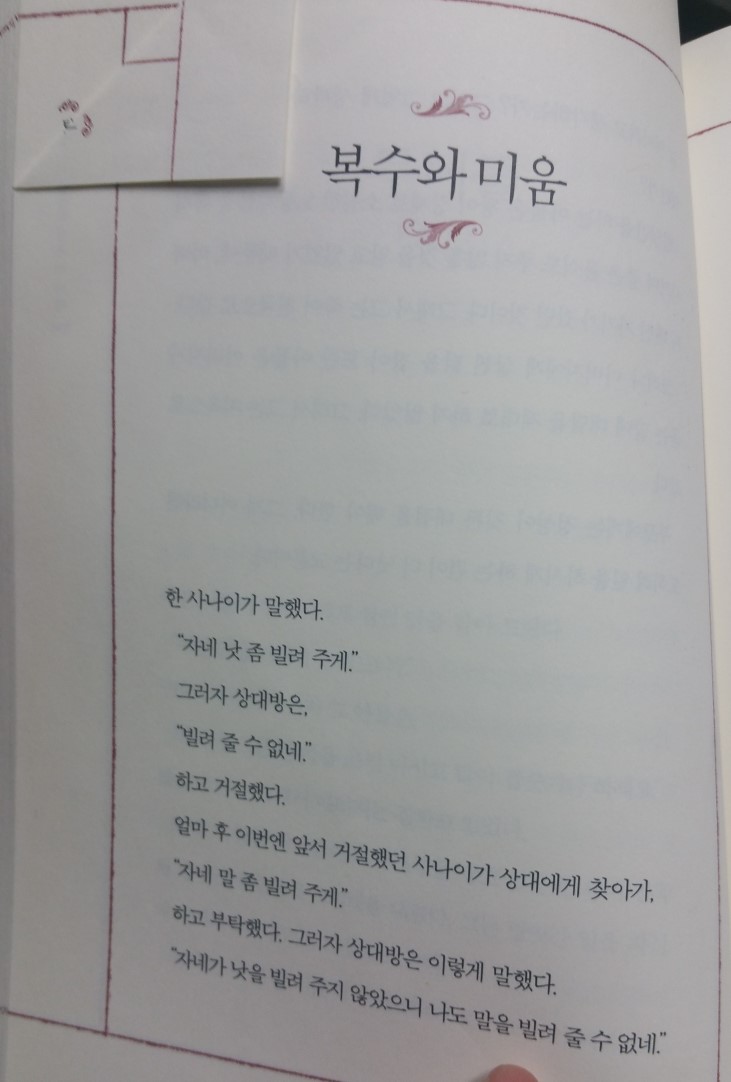 복수와 미움
한 사나이가 말했다.
"자네 낫 좀 빌려 주게."
그러자 상대방은,
"빌려 줄 수 없네."
하고 거절했다.
얼마 후 이번엔 앞서 거절했던 사나이가 상대에게 찾아가,
"자네 말 좀 빌려 주게."
하고 부탁했다. 그러자 상대방은 이렇게 말했다.
"자네가 낫을 빌려 주지 않았으니 나도 말을 빌려 줄 수 없네."